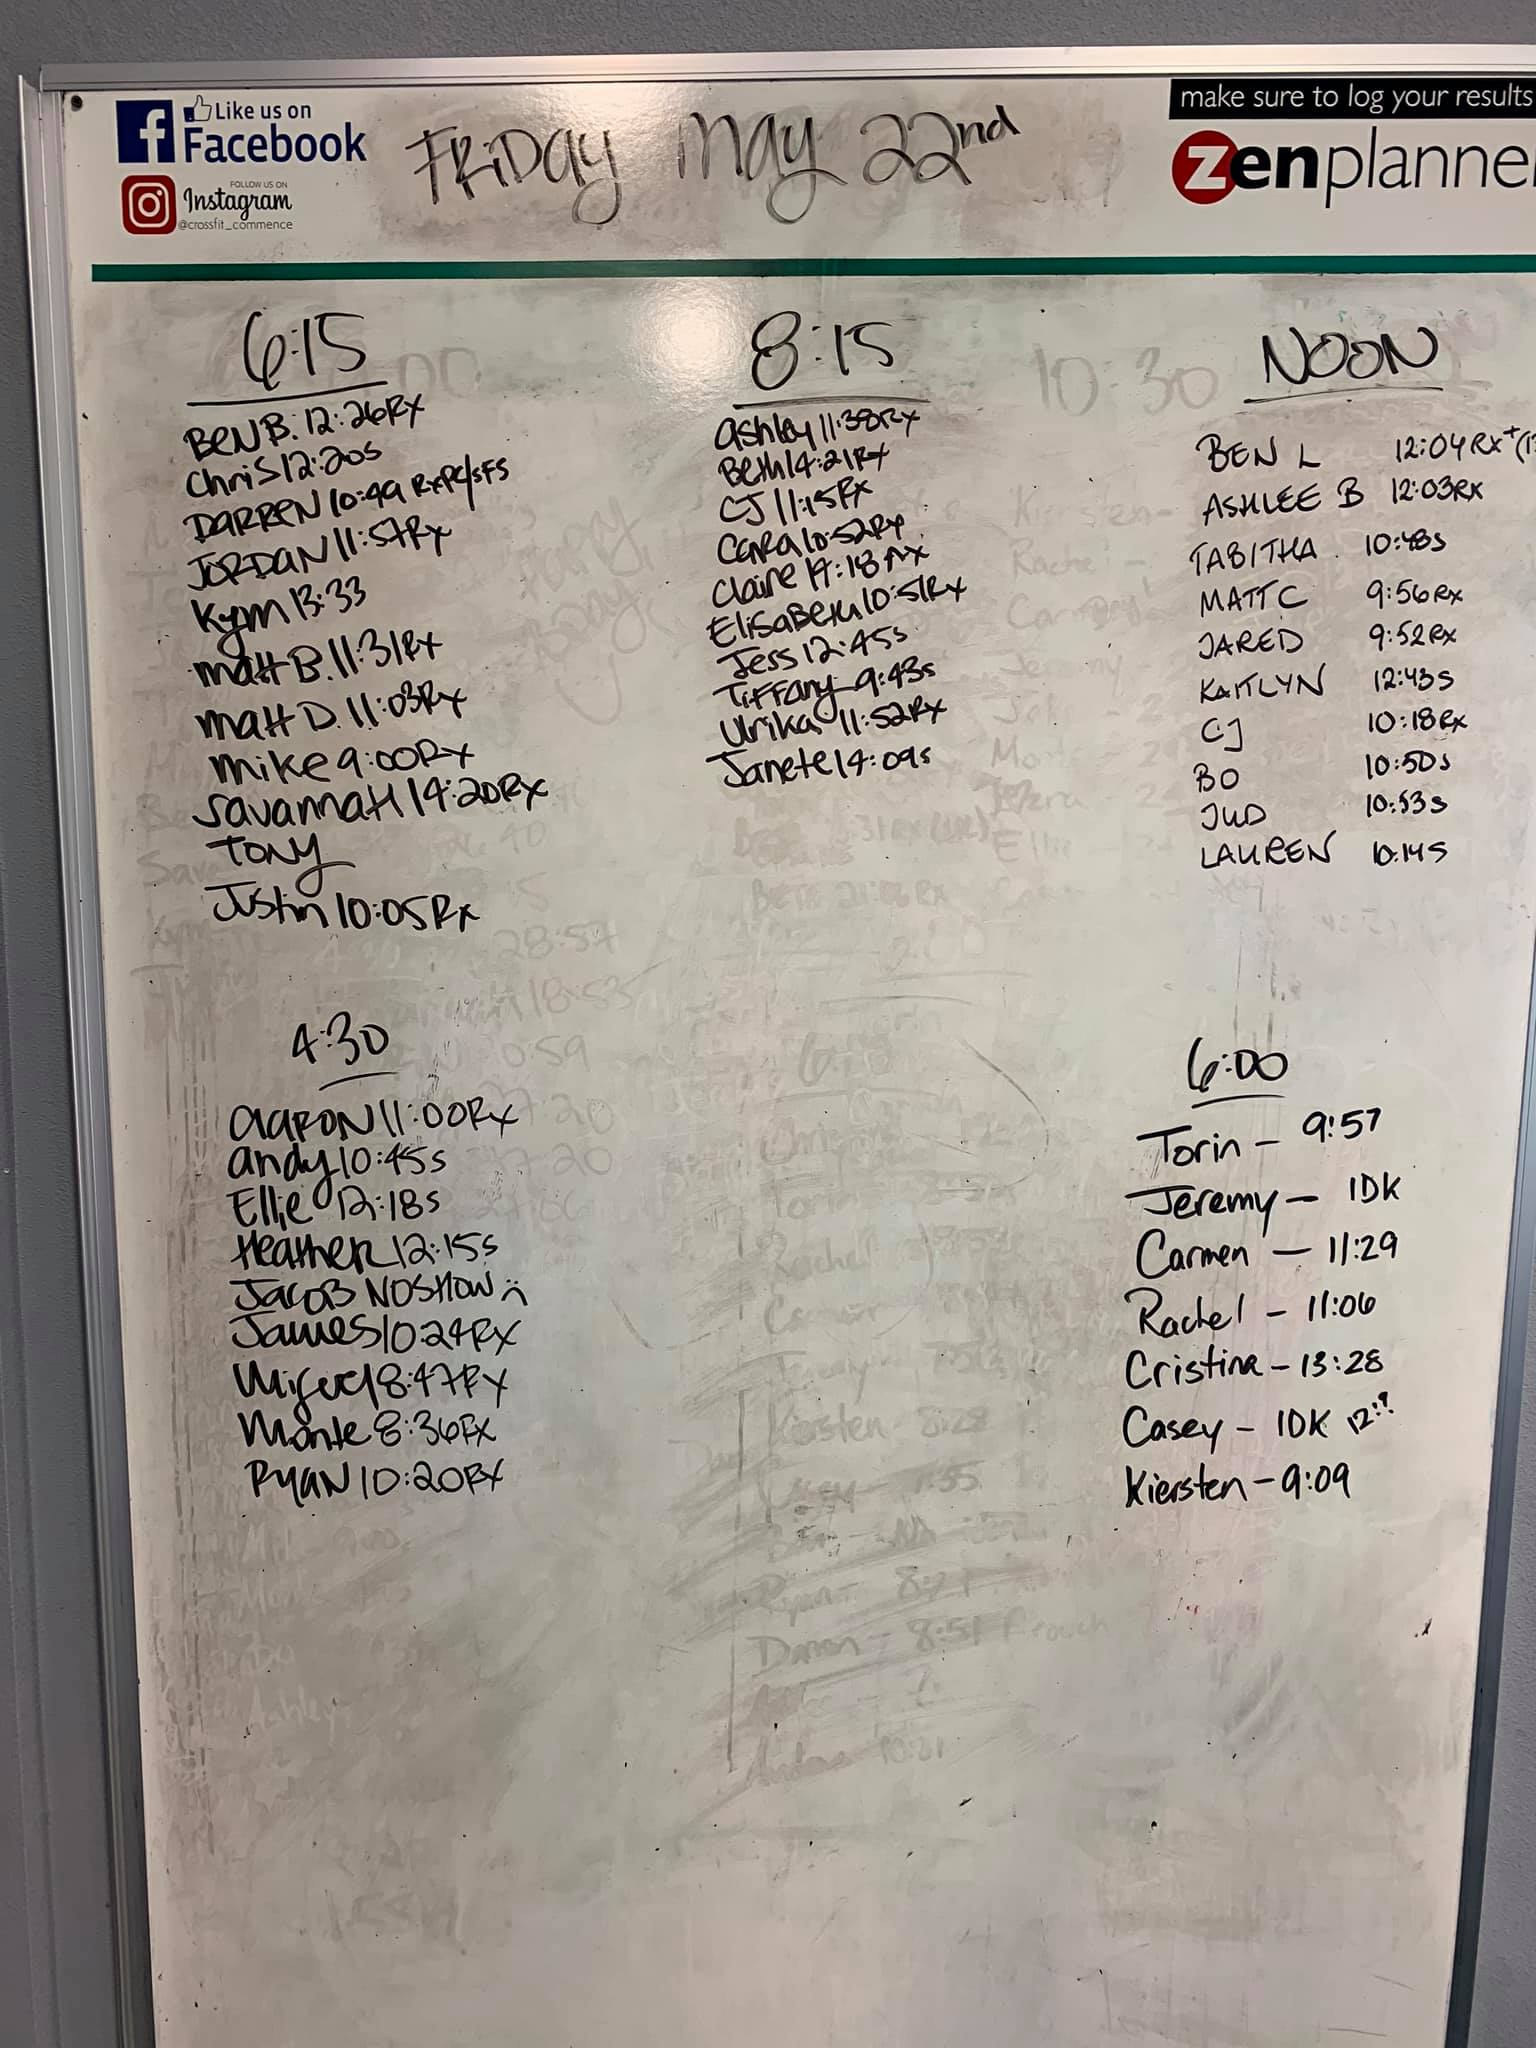 Like us on
Facebook
FOLLOW US ON
Instagram
@crossfit_commence
FRiDay May 22nd
make sure to log your results
zenplanner
6:15
BEN B. 12:26Rx
Chris 12:20s
DARREN 10:49 RxPC/SFS
JORDAN 11:57Rx
Kym 13:33
Matt B. 11:31Rx
Matt D. 11:03Rx
Mike 9:00Rx
SavannaH 14:20Rx
TONY
Justin 10:05Rx
8:15
Ashley 11:38Rx
Beth 14:21Rx
CJ 11:15Rx
Cara 10:52Rx
Claire 14:18Rx
Elisabeth 10:51Rx
Jess 12:45s
Tiffany 9:43s
Ulrika 11:52Rx
Janete 14:09s
10:30
NOON
BEN L 12:04Rx+
ASHLEE B 12:03Rx
TABITHA 10:48s
MATT C 9:56Rx
JARED 9:52Rx
KAITLYN 12:43s
CJ 10:18Rx
BO 10:50s
JUD 10:53s
LAUREN 10:14s
4:30
AARON 11:00Rx
Andy 10:45s
Ellie 12:18s
Heather 12:15s
JACOB NOSHOW :(
James 10:24Rx
Miguel 8:47Rx
Monte 8:36Rx
RYAN 10:20Rx
6:00
Torin - 9:57
Jeremy - IDK
Carmen - 11:29
Rachel - 11:06
Cristina - 13:28
Casey - IDK 12:??
Kiersten - 9:09
Kiersten 8:28
Daren - 8:51